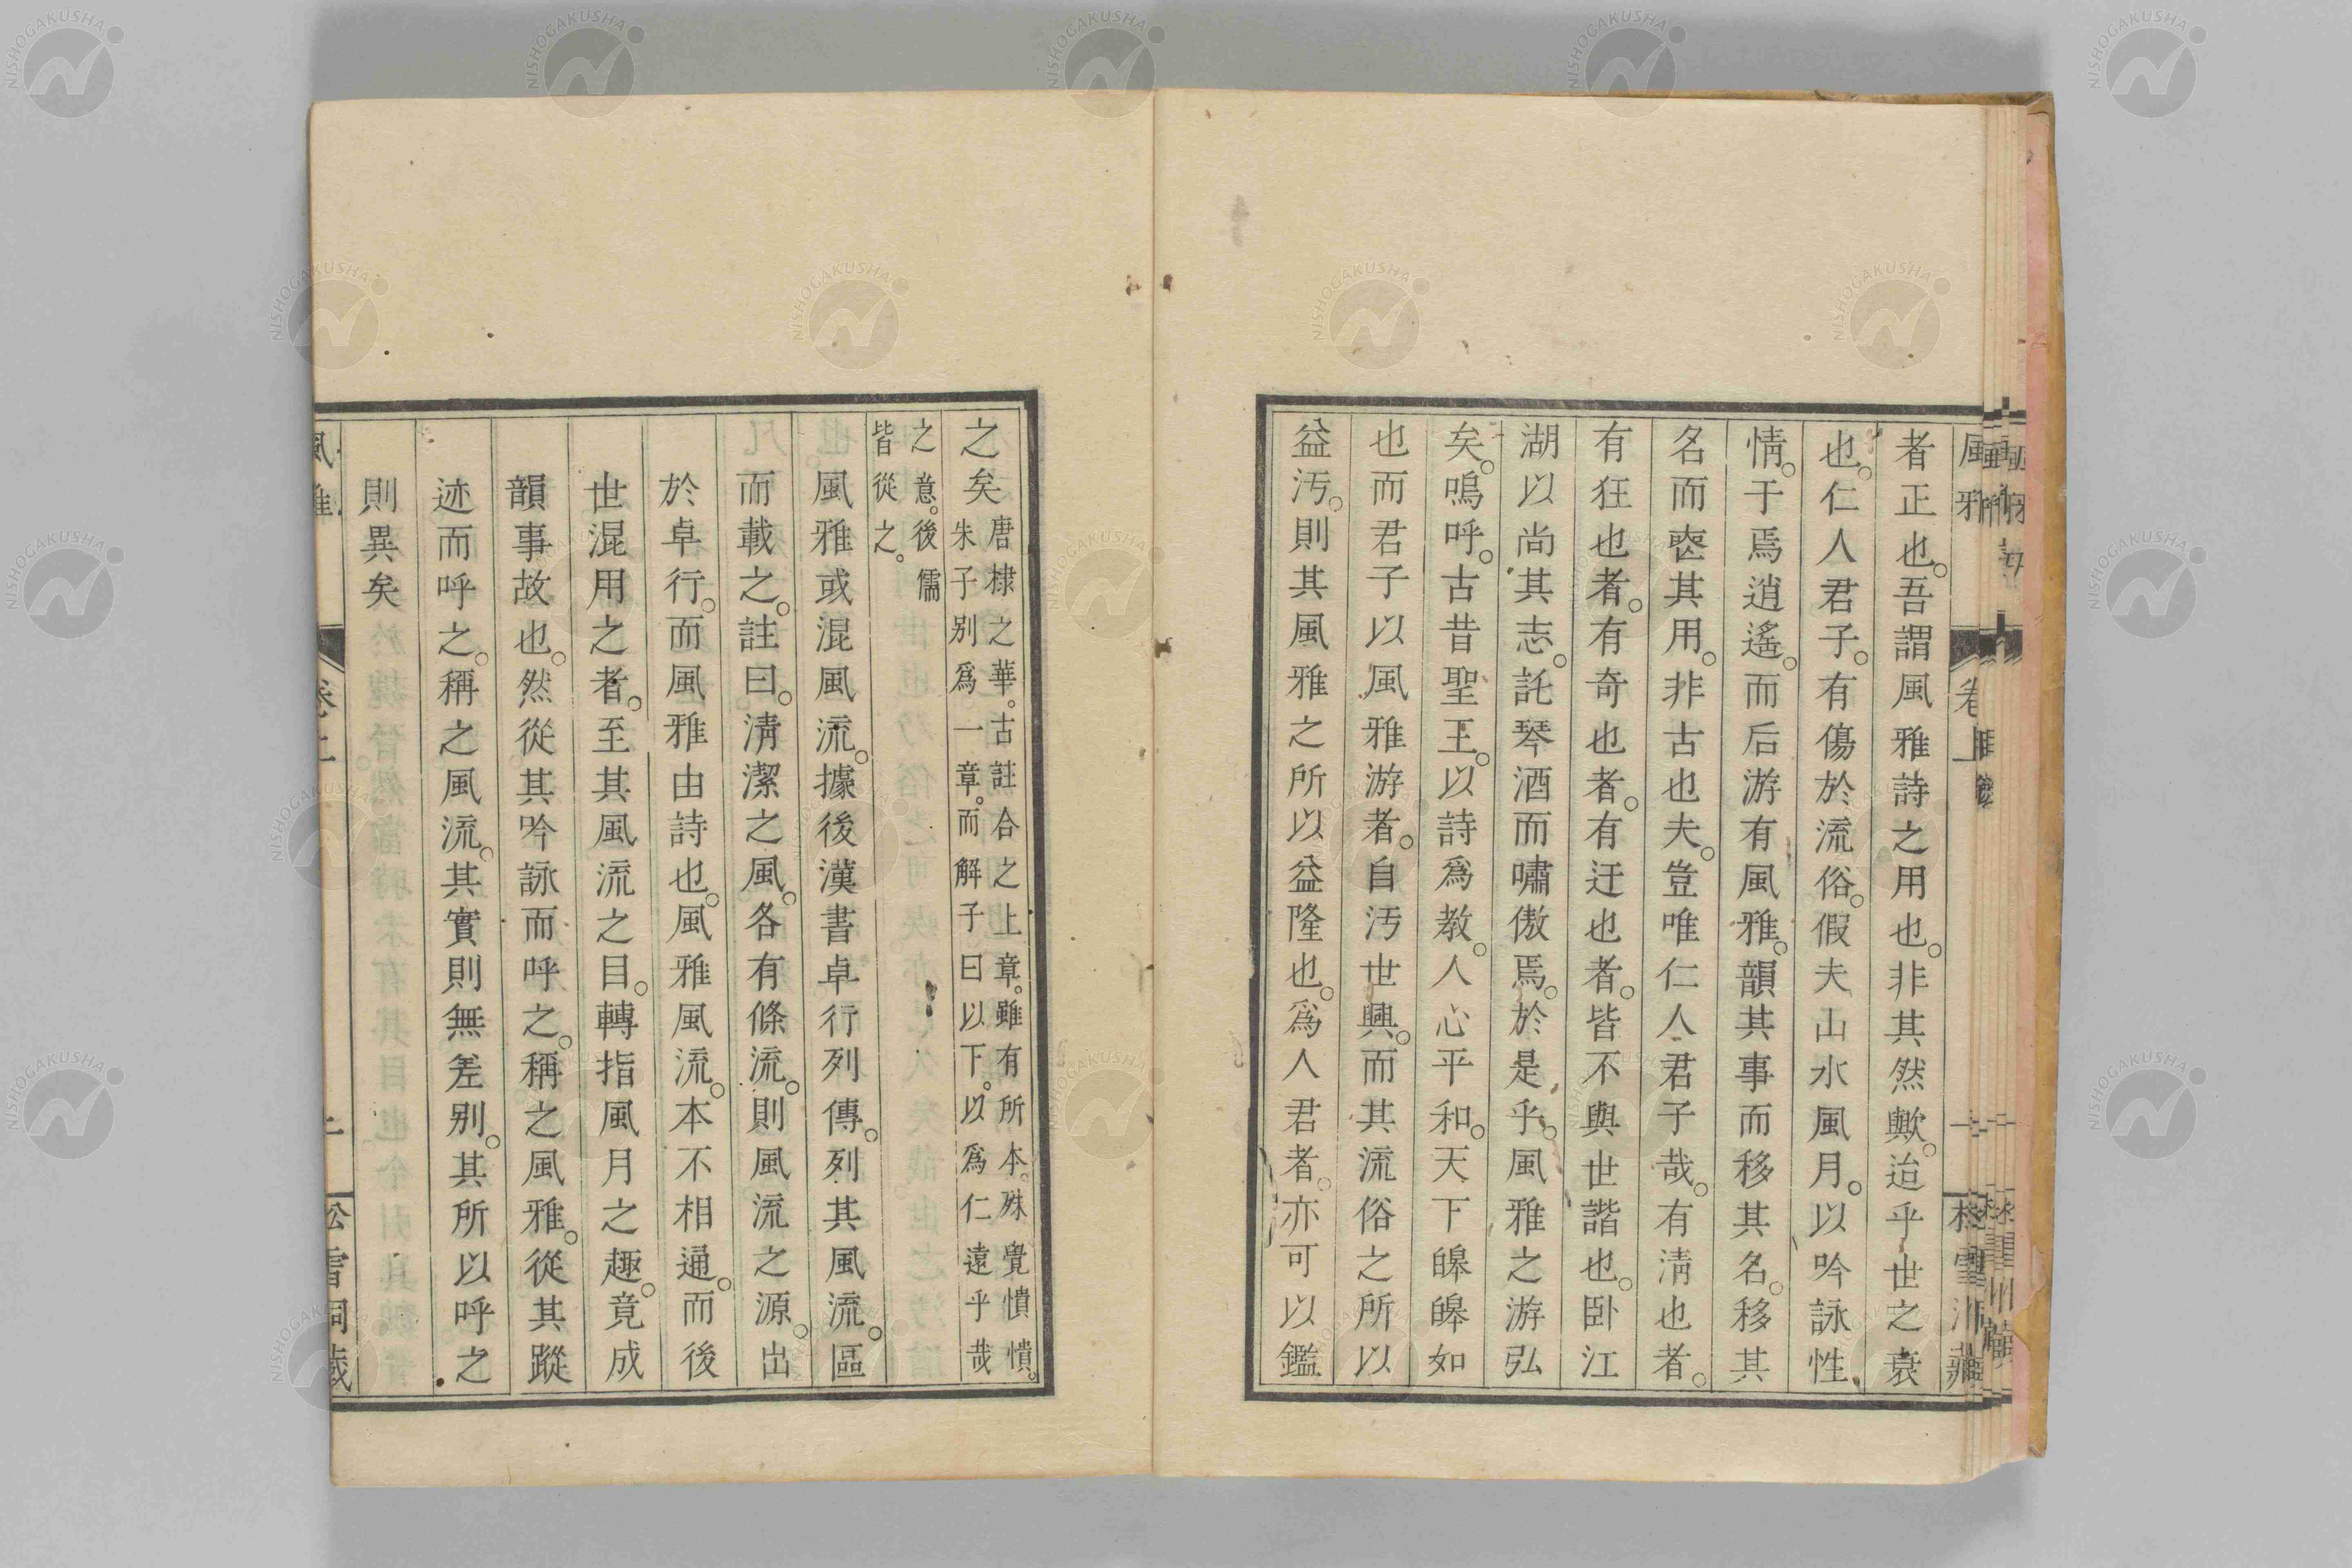 者正也。吾謂風雅詩之用也。非其然歟。迨乎世之衰
也。仁人君子。有傷於流俗。假夫山水風月。以吟詠性
情。于焉逍遙。而后游有風雅。韻其事而移其名。移其
名而喪其用。非古也夫。豈唯仁人君子哉。有淸也者。
有狂也者。有奇也者。有迂也者。皆不與世諧也。卧江
湖以尚其志。託琴酒而嘯傲焉。於是乎。風雅之游弘
矣。嗚呼。古昔聖王。以詩爲教。人心平和。天下皞皞如
也而君子以風雅游者。自汚世興。而其流俗之所以
益汚。則其風雅之所以益隆也。爲人君者。亦可以鑑
之矣唐棣之華。古註合之上章。雖有所本。殊覺憒憒。
朱子別爲一章。而解子曰以下。以爲仁遠乎哉
之意。後儒
皆從之。
風雅或混風流。據後漢書卓行列傳。列其風流。區
而載之。註曰。淸潔之風。各有條流。則風流之源。出
於卓行。而風雅由詩也。風雅風流。本不相通。而後
世混用之者。至其風流之目。轉指風月之趣。竟成
韻事故也。然從其吟詠而呼之。稱之風雅。從其蹤
迹而呼之。稱之風流。其實則無差別。其所以呼之
則異矣
NISHOGAKUSHA